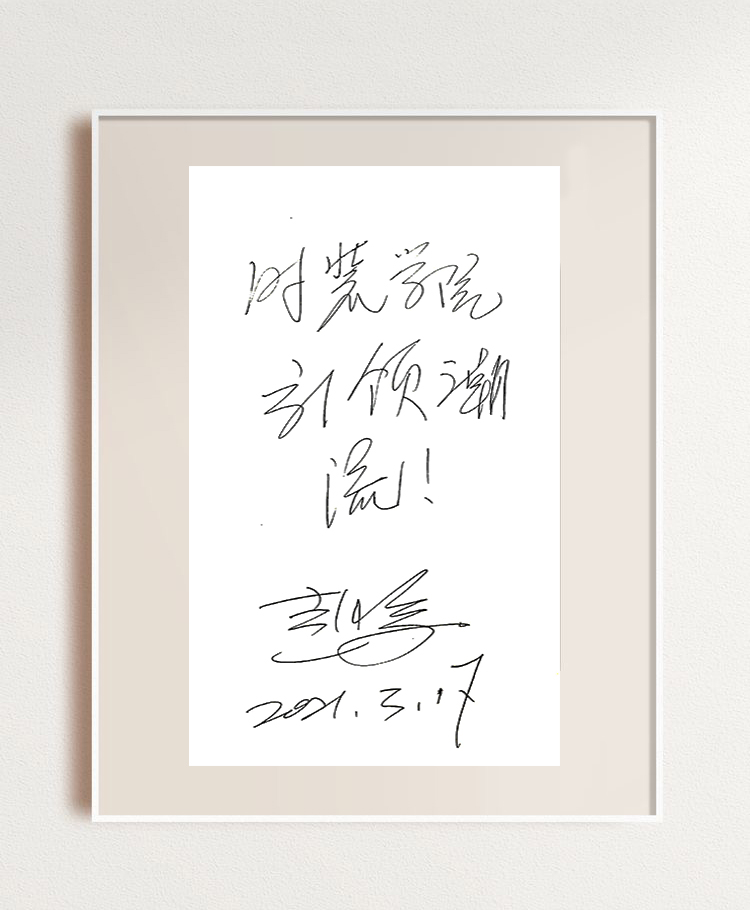 时装学院
引领潮
流!
2021.3.17